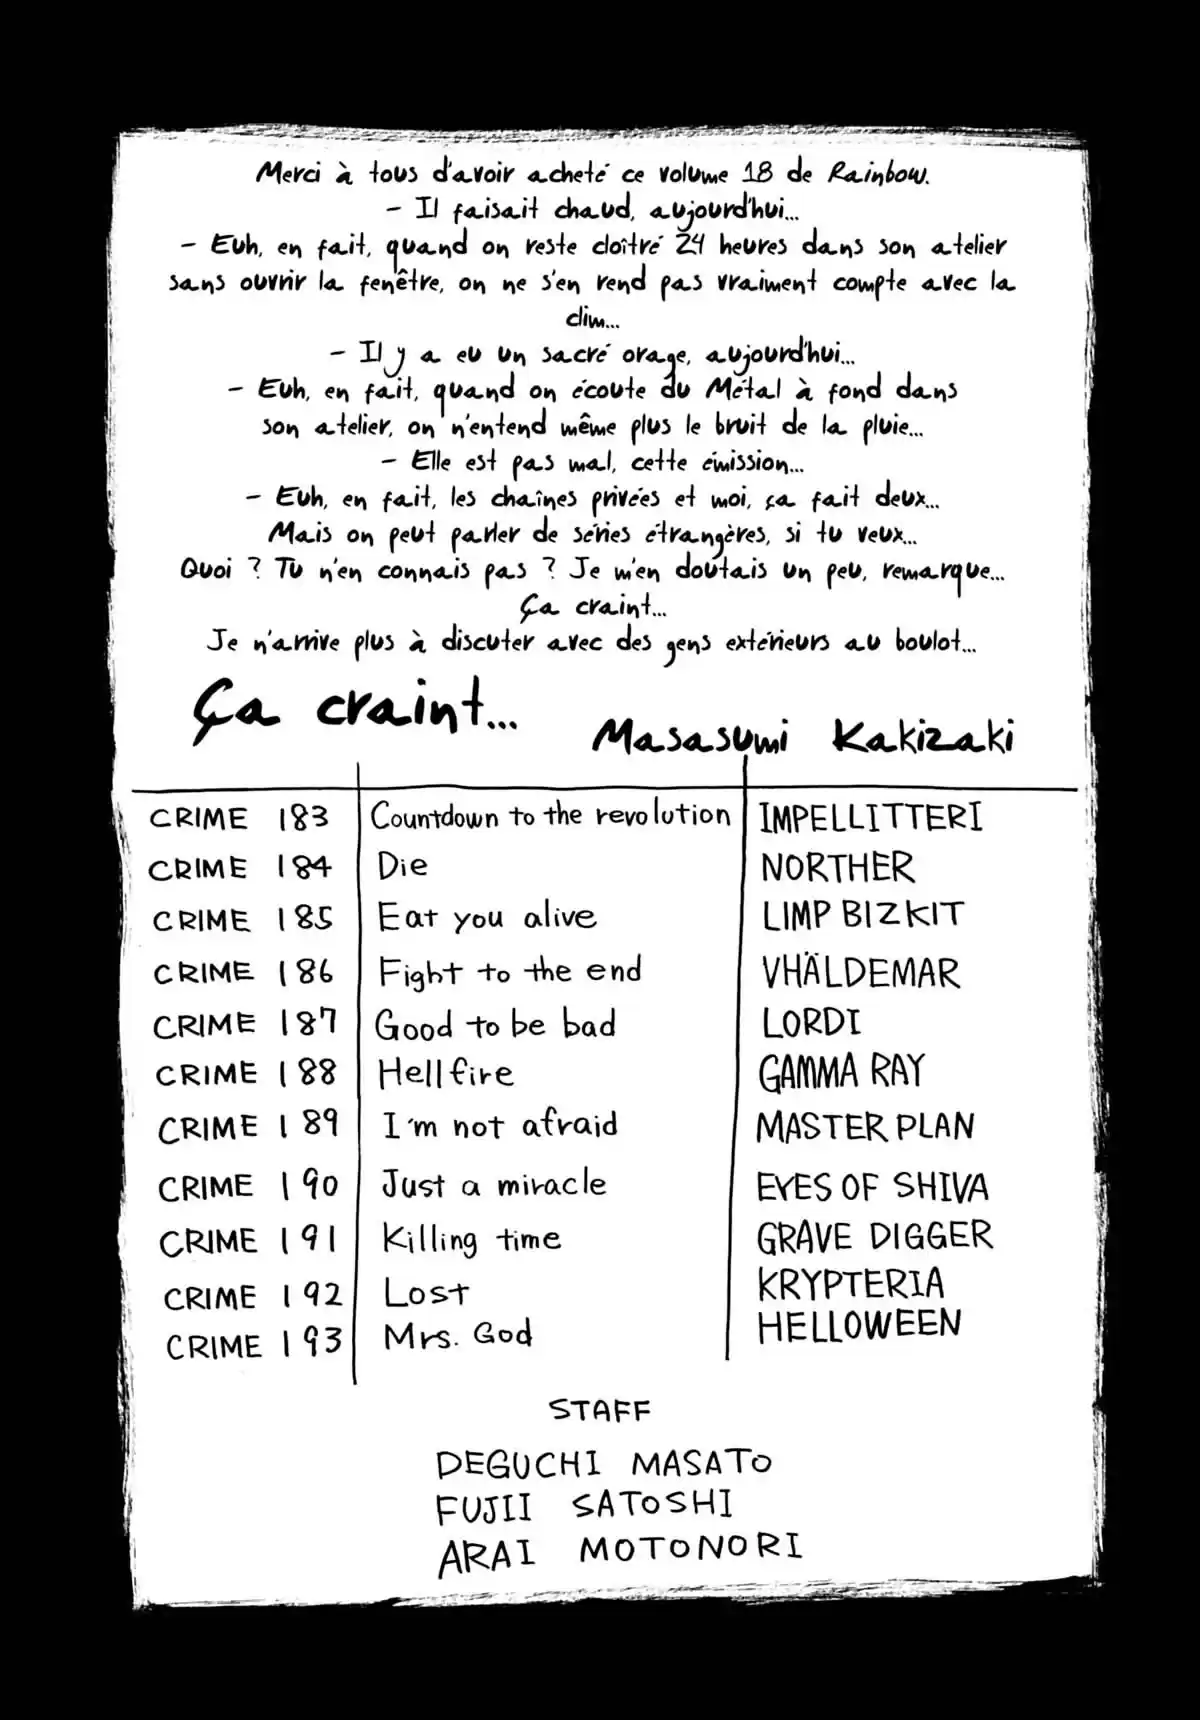 Merci à tous d'avoir acheté ce volume 18 de Rainbow.
- Il faisait chaud, aujourd'hui...
- Euh, en fait, quand on reste cloîtré 24 heures dans son atelier
sans ouvrir la fenêtre, on ne s'en rend pas vraiment compte avec la
clim...
- Il y a eu un sacré orage, aujourd'hui...
- Euh, en fait, quand on écoute du Métal à fond dans
son atelier, on n'entend même plus le bruit de la pluie...
- Elle est pas mal, cette émission...
- Euh, en fait, les chaînes privées et moi, ça fait deux...
Mais on peut parler de séries étrangères, si tu veux...
Quoi ? Tu n'en connais pas ? Je m'en doutais un peu, remarque...
Ça craint...
Je n'arrive plus à discuter avec des gens extérieurs au boulot...
Ça craint...
Masasumi Kakizaki
CRIME 183 Countdown to the revolution IMPELLITTERI
CRIME 184 Die NORTHER
CRIME 185 Eat you alive LIMP BIZKIT
CRIME 186 Fight to the end VHÄLDEMAR
CRIME 187 Good to be bad LORDI
CRIME 188 Hellfire GAMMA RAY
CRIME 189 I'm not afraid MASTER PLAN
CRIME 190 Just a miracle EYES OF SHIVA
CRIME 191 Killing time GRAVE DIGGER
CRIME 192 Lost KRYPTERIA
CRIME 193 Mrs. God HELLOWEEN
STAFF
DEGUCHI MASATO
FUJII SATOSHI
ARAI MOTONORI